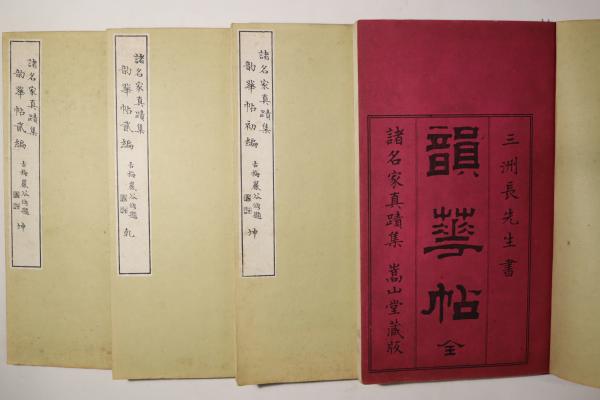 三洲長先生書
韻華帖 全
諸名家真蹟集 嵩山堂藏版
諸名家真蹟集
韵華帖初編
古梅巖谷修題 坤
諸名家真蹟集
韵華帖貳編
古梅巖谷修題 乾
諸名家真蹟集
韵華帖貳編
古梅巖谷修題 坤